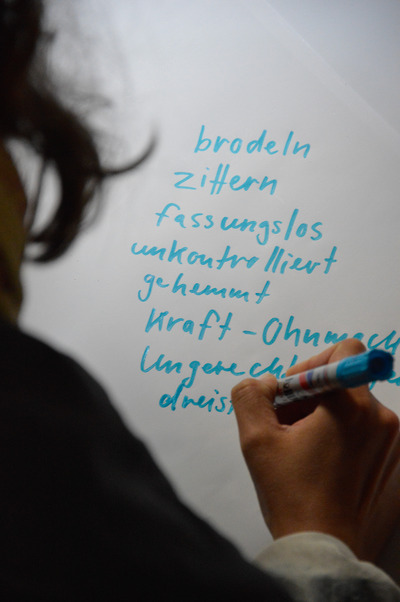 brodeln
zittern
fassungslos
unkontrolliert
gehemmt
Kraft - Ohnmach
Ungerech
dreis